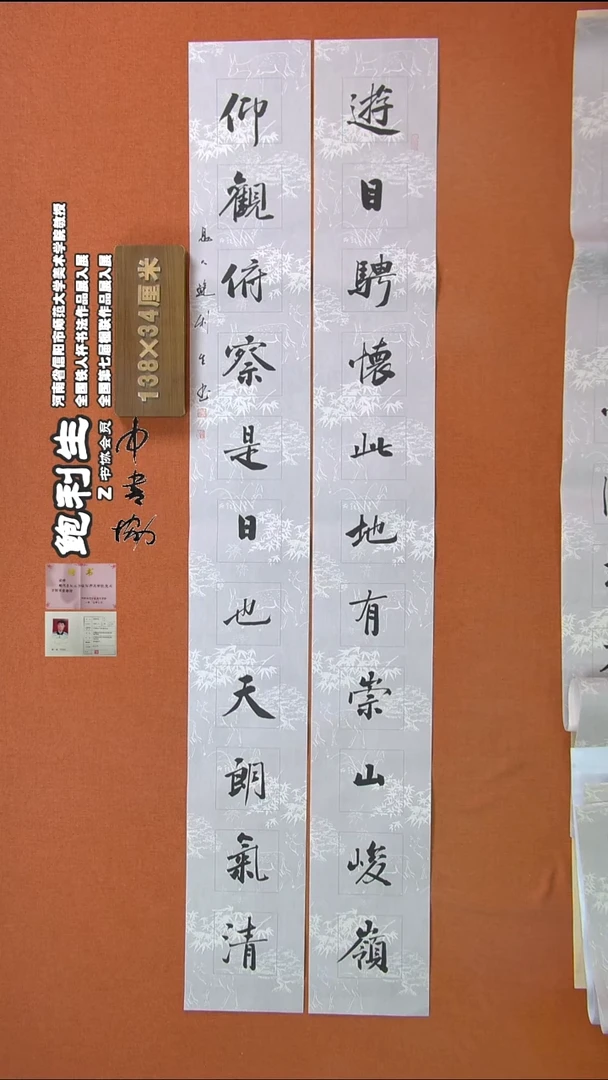 遊目騁懷此地有崇山峻嶺
仰觀俯察是日也天朗氣清
鮑利生
138×34厘米
河南省信阳市师范大学美术学院教授
全国铁人杯书法作品展入展
全国第七届楹联作品展入展
鲍利生
Z书协会员
中书协